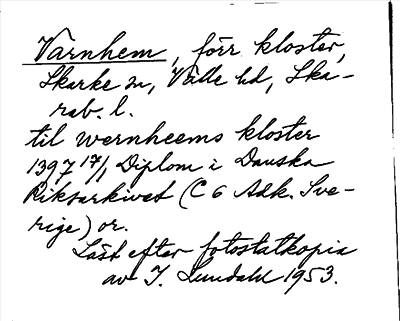 Varnhem, förr kloster,
Skarke sn, Valle hd, Ska-
rab. l.
til wernheems kloster
1397 17/1 Diplom i Danska
Riksarkivet (C 6 Adk. Sve-
rige) or.
Läst efter fotostatkopia
av I. Lundahl 1953.